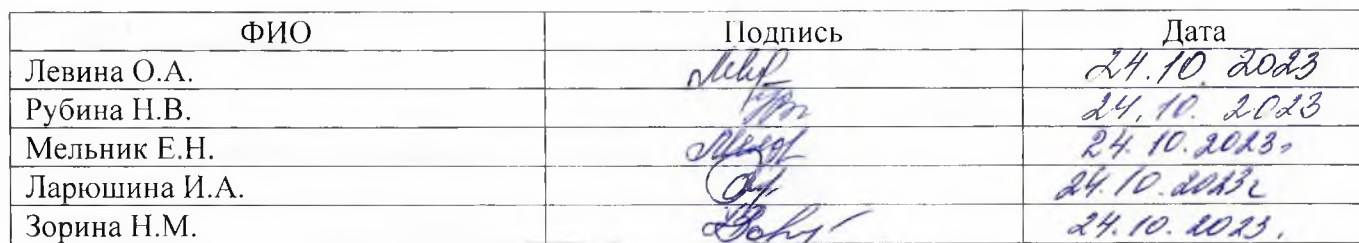 ФИО Подпись Дата
Левина О.А. 24.10.2023
Рубина Н.В. 24.10.2023
Мельник Е.Н. 24.10.2023г
Ларюшина И.А. 24.10.2023г
Зорина Н.М. 24.10.2023.